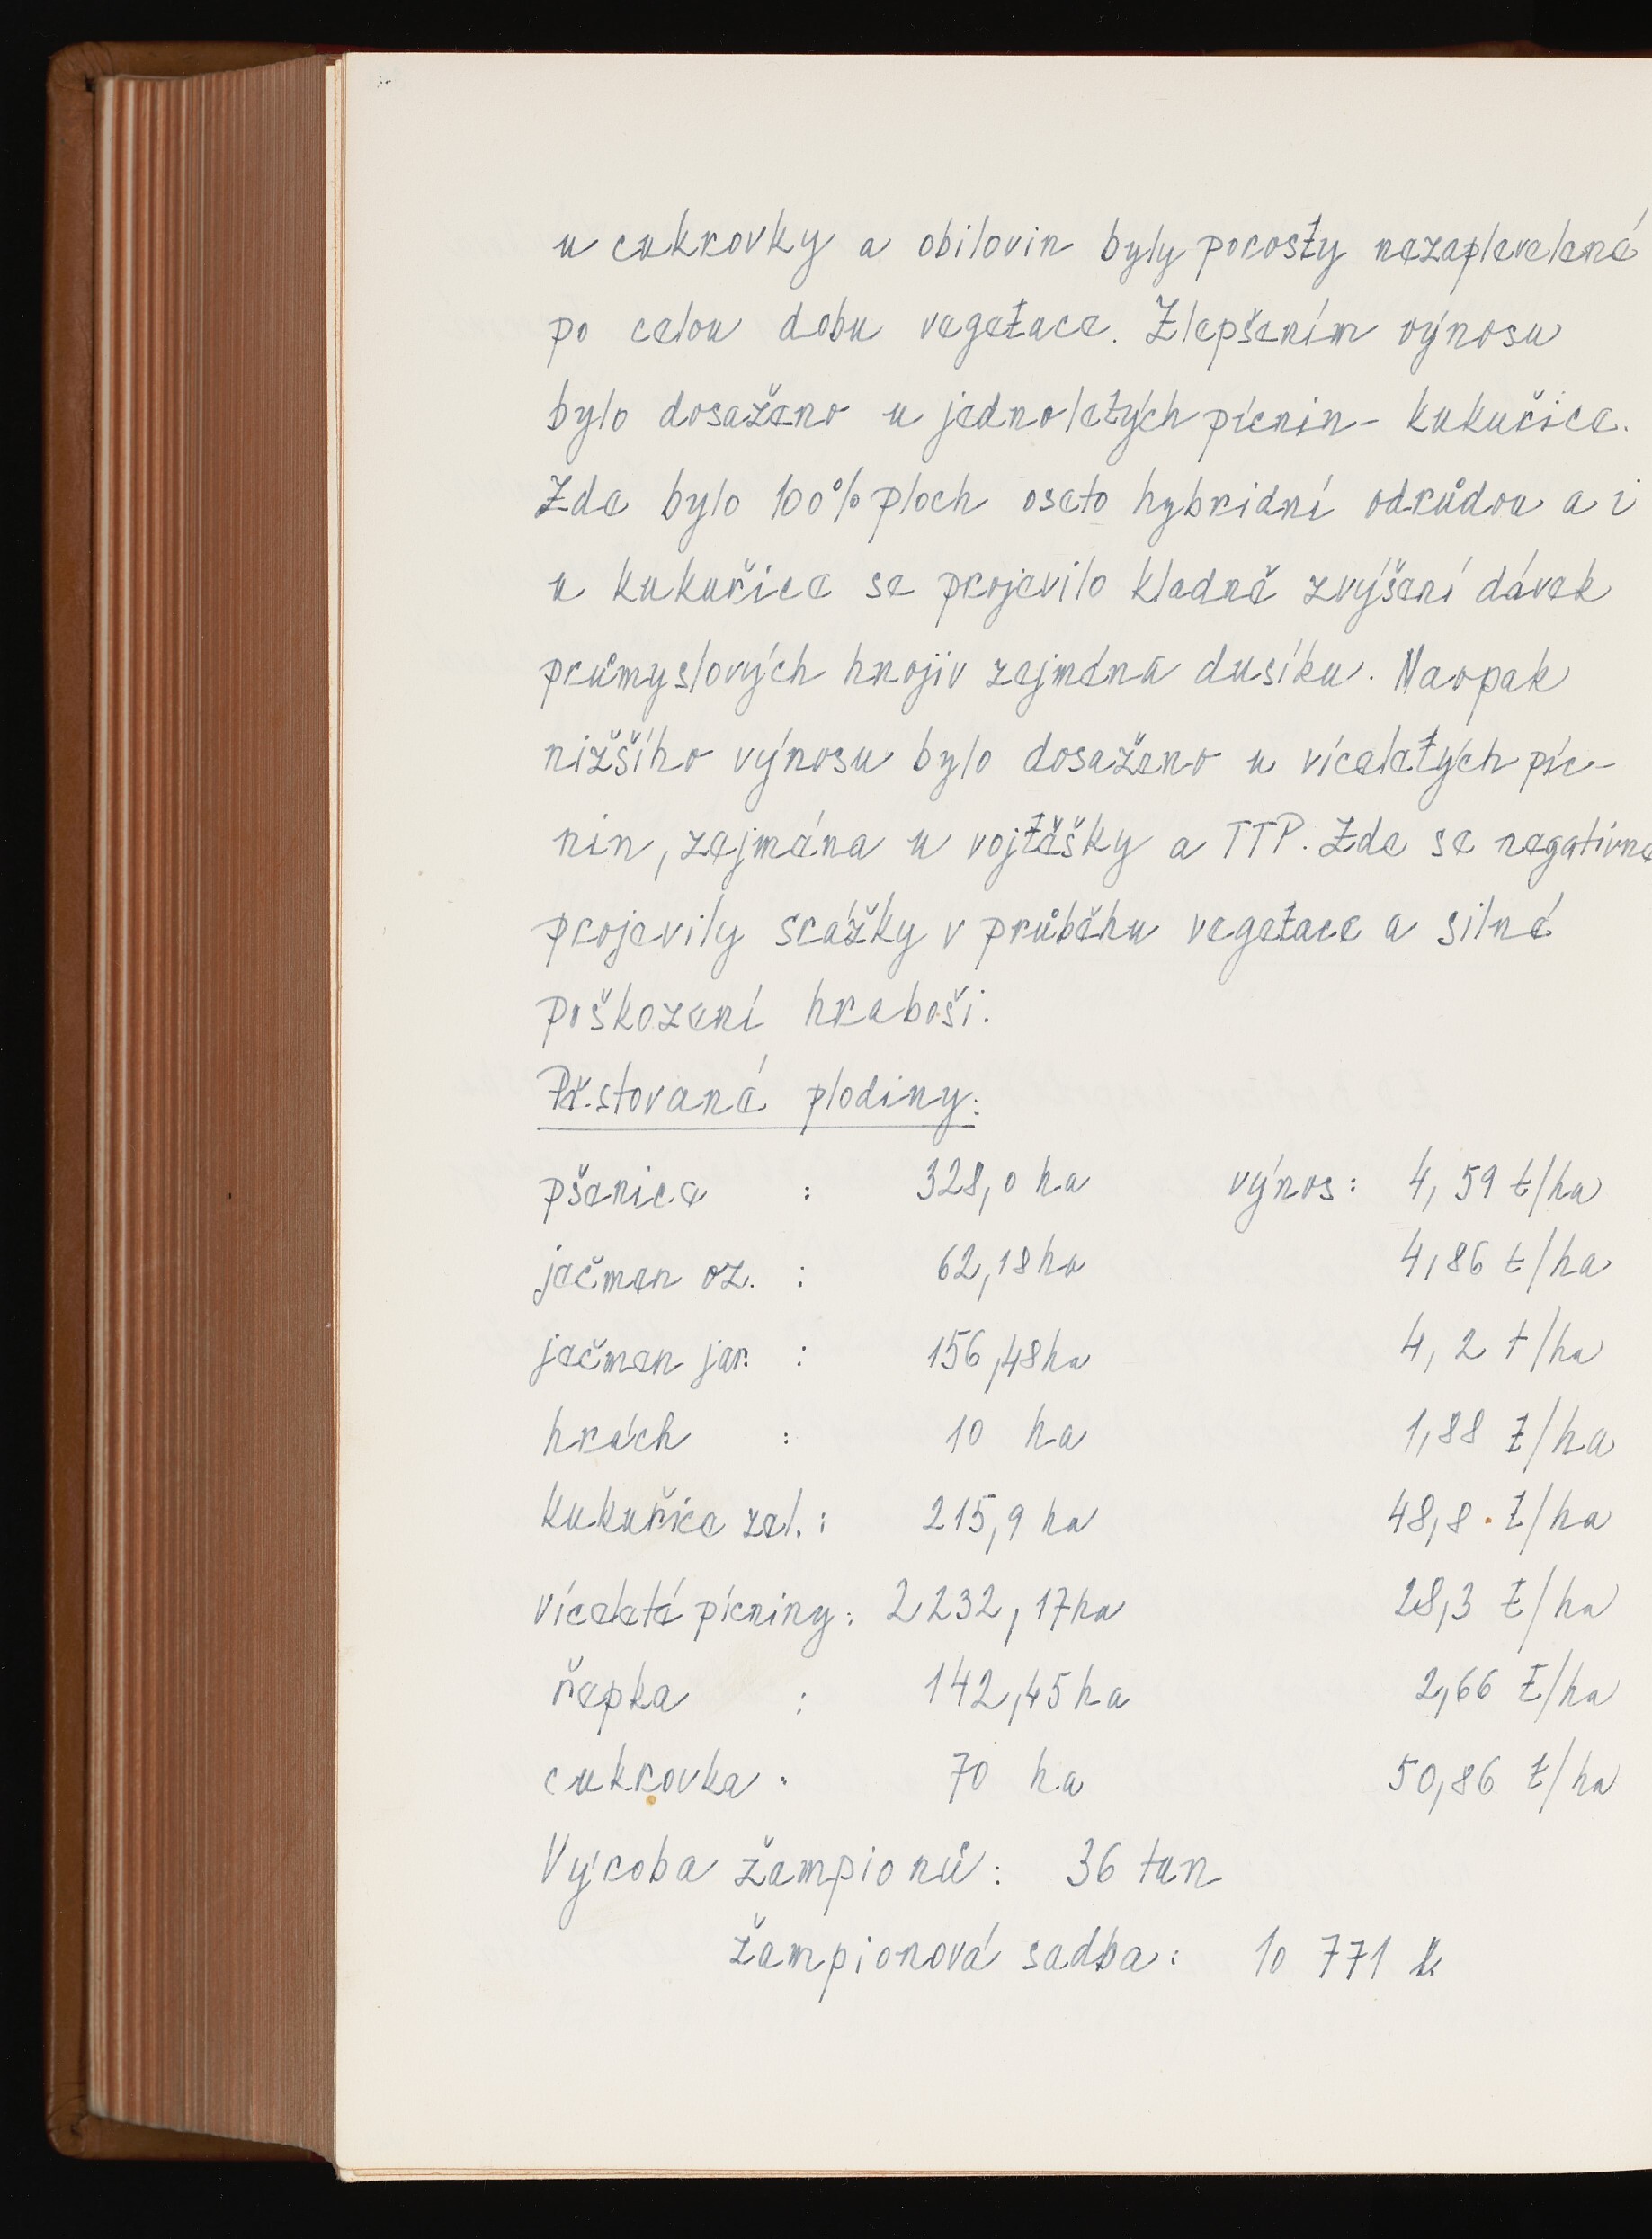 u cukrovky a obilovin byly porosty nezaplevelené
po celou dobu vegetace. Zlepšením výnosu
bylo dosaženo u jednoletých pícnin - kukuřice.
Zde bylo 100% ploch oseto hybridní odrůdou a i
u kukuřice se projevilo kladně zvýšení dávek
průmyslových hnojiv zejména dusíku. Naopak
nižšího výnosu bylo dosaženo u víceletých píc-
nin, zejména u vojtěšky a TTP. Zde se negativně
projevily srážky v průběhu vegetace a silné
poškození hraboši.
Pěstované plodiny:
pšenice : 328,0 ha výnos: 4,59 t/ha
ječmen oz. : 62,18 ha 4,86 t/ha
ječmen jar. : 156,48 ha 4,2 t/ha
hrách : 10 ha 1,88 t/ha
kukuřice zel. : 215,9 ha 48,8 t/ha
víceleté pícniny : 2232,17 ha 28,3 t/ha
řepka : 142,45 ha 2,66 t/ha
cukrovka : 70 ha 50,86 t/ha
Výroba žampionů : 36 tun
žampionová sadba : 10 771